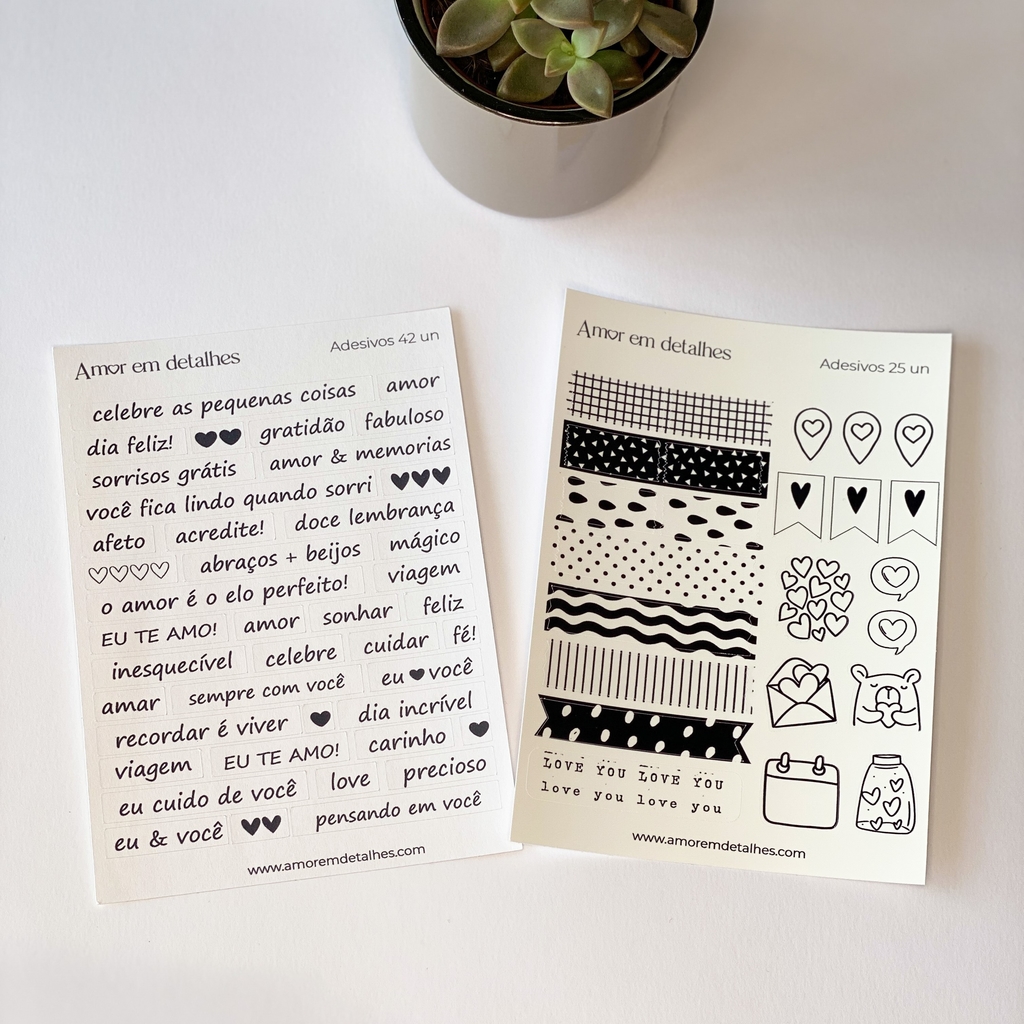 Amor em detalhes
Adesivos 42 un
celebre as pequenas coisas amor
dia feliz! gratidão fabuloso
sorrisos grátis amor & memorias
você fica lindo quando sorri
afeto acredite! doce lembrança
abraços + beijos mágico
o amor é o elo perfeito! viagem
EU TE AMO! amor sonhar feliz
inesquecível celebre cuidar fé!
amar sempre com você eu ♥ você
recordar é viver dia incrível
viagem EU TE AMO! carinho
eu cuido de você love precioso
eu & você pensando em você
www.amoremdetalhes.com
Amor em detalhes
Adesivos 25 un
LOVE YOU LOVE YOU
love you love you
www.amoremdetalhes.com